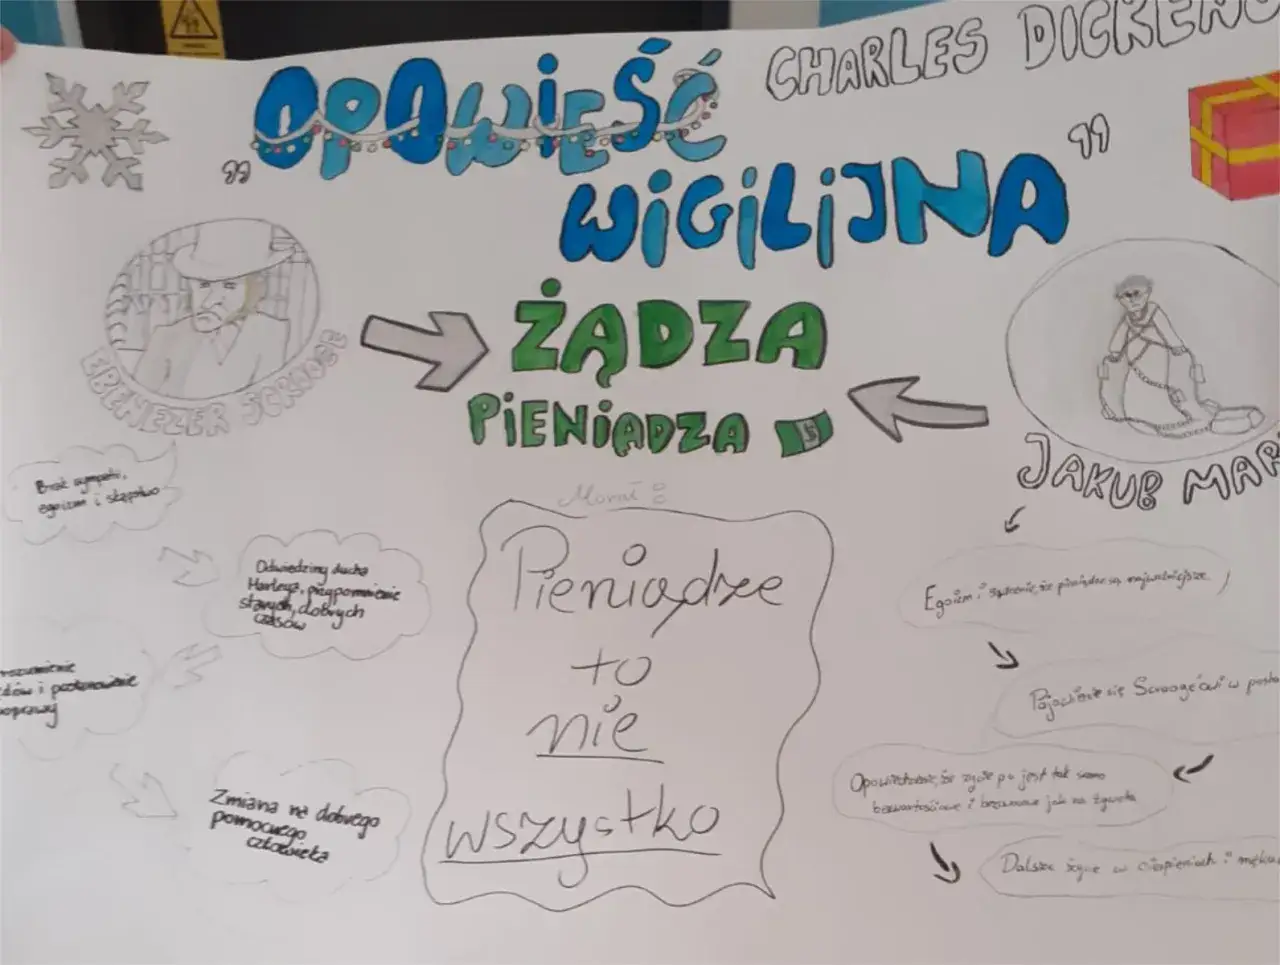 CHARLES DICKENS
„OPOWIEŚĆ
WIGILIJNA”
ŻĄDZA
PIENIĄDZA
EBENEZER SCROOGE
JAKUB MAR
Brak sympatii,
egoizm i skąpstwo
Odwiedziny ducha
Marleya, przypomnienie
starych, dobrych
czasów
i postanowienie
poprawy
Zmiana na dobrego
pomocnego
człowieka
Morał:
Pieniądze
to
nie
wszystko
Egoizm i sądzenie, że pieniądze są najważniejsze
Pojawienie się Scrooge'owi w
Opowiedzenie, że życie po jest tak samo
bezwartościowe i jak na żywota
Dalsze życie w cierpieniach i